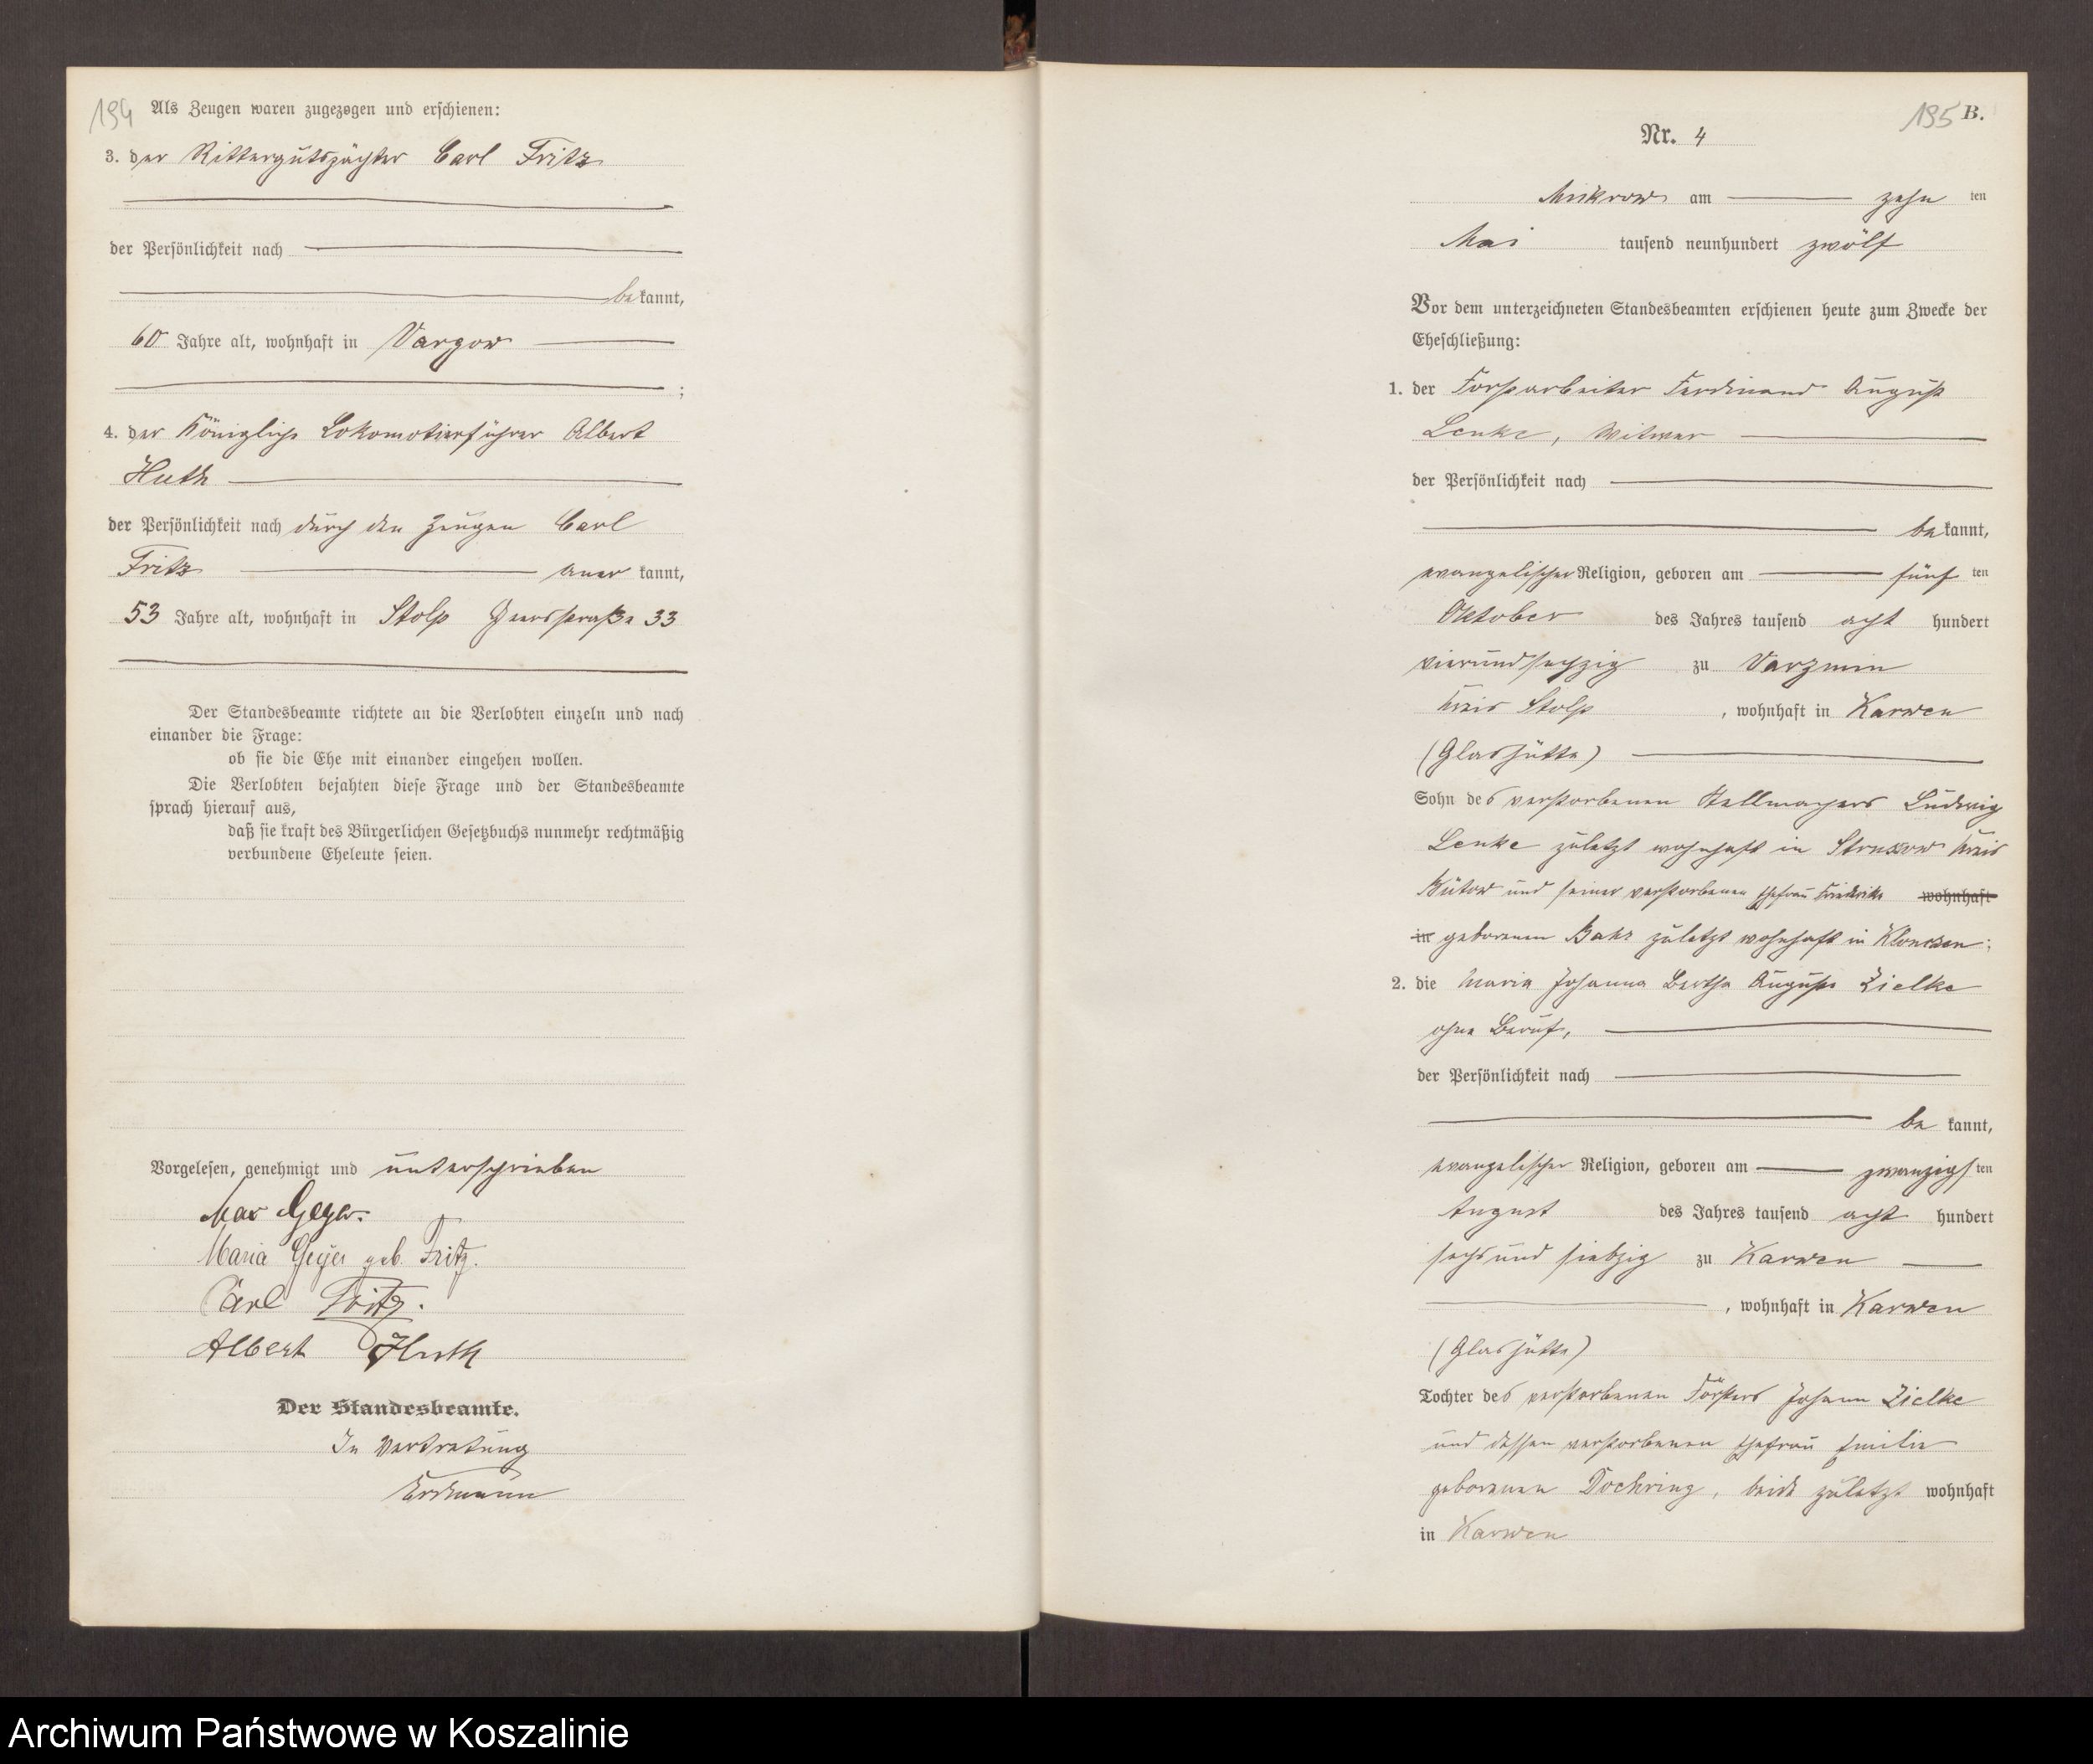 194
Als Zeugen waren zugezogen und erschienen:
3. der Rittergutspächter Carl Fritz
der Persönlichkeit nach
bekannt,
60 Jahre alt, wohnhaft in Vargow
;
4. der Königliche Lokomotivführer Albert
Huth
der Persönlichkeit nach durch den Zeugen Carl
Fritz aner kannt,
53 Jahre alt, wohnhaft in Stolp 33
Der Standesbeamte richtete an die Verlobten einzeln und nach
einander die Frage:
ob sie die Ehe mit einander eingehen wollen.
Die Verlobten bejahten diese Frage und der Standesbeamte
sprach hierauf aus,
daß sie kraft des Bürgerlichen Gesetzbuchs nunmehr rechtmäßig
verbundene Eheleute seien.
Vorgelesen, genehmigt und unterschrieben
Max Geyer.
Maria Geyer geb. Fritz.
Carl Fritz.
Albert Huth
Der Standesbeamte.
In Vertretung
Erdmann
195 B.
Nr. 4
Mikrow am zehn ten
Mai tausend neunhundert zwölf
Vor dem unterzeichneten Standesbeamten erschienen heute zum Zwecke der
Eheschließung:
1. der Forstarbeiter Ferdinand August
Lenke, Witwer
der Persönlichkeit nach
bekannt,
evangelischer Religion, geboren am fünf ten
Oktober des Jahres tausend acht hundert
vierundsechzig zu Varzmin
Kreis Stolp , wohnhaft in Karwen
(Glashütte)
Sohn des verstorbenen Stellmachers Ludwig
Lenke zuletzt wohnhaft in Strussow Kreis
Bütow und seiner verstorbenen Ehefrau Friederike wohnhaft
in geborenen Bahr zuletzt wohnhaft in Kloncken;
2. die Maria Johanna Bertha Auguste Zielke
ohne Beruf,
der Persönlichkeit nach
be kannt,
evangelischer Religion, geboren am zwanzigsten
August des Jahres tausend acht hundert
sechs und siebzig zu Karwen
, wohnhaft in Karwen
(Glashütte)
Tochter des verstorbenen Försters Johann Zielke
und dessen verstorbenen Ehefrau Emilie
geborenen Dochring, beide zuletzt wohnhaft
in Karwen
Archiwum Państwowe w Koszalinie